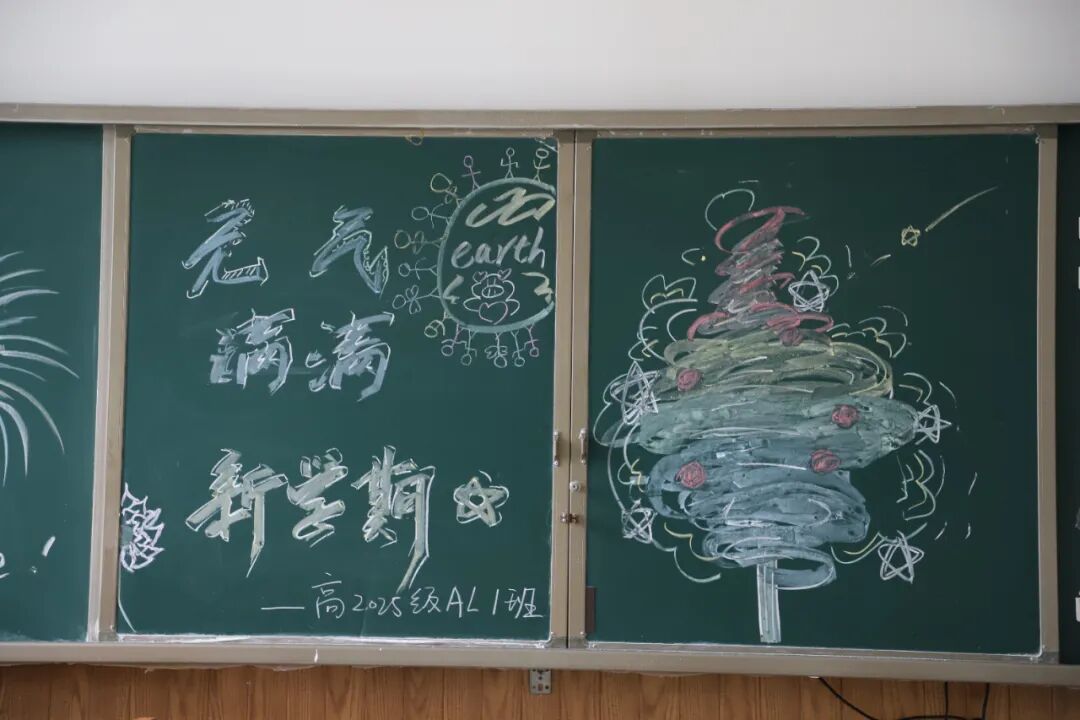 元气
满满
earth
新学期
—高2025级AL1班